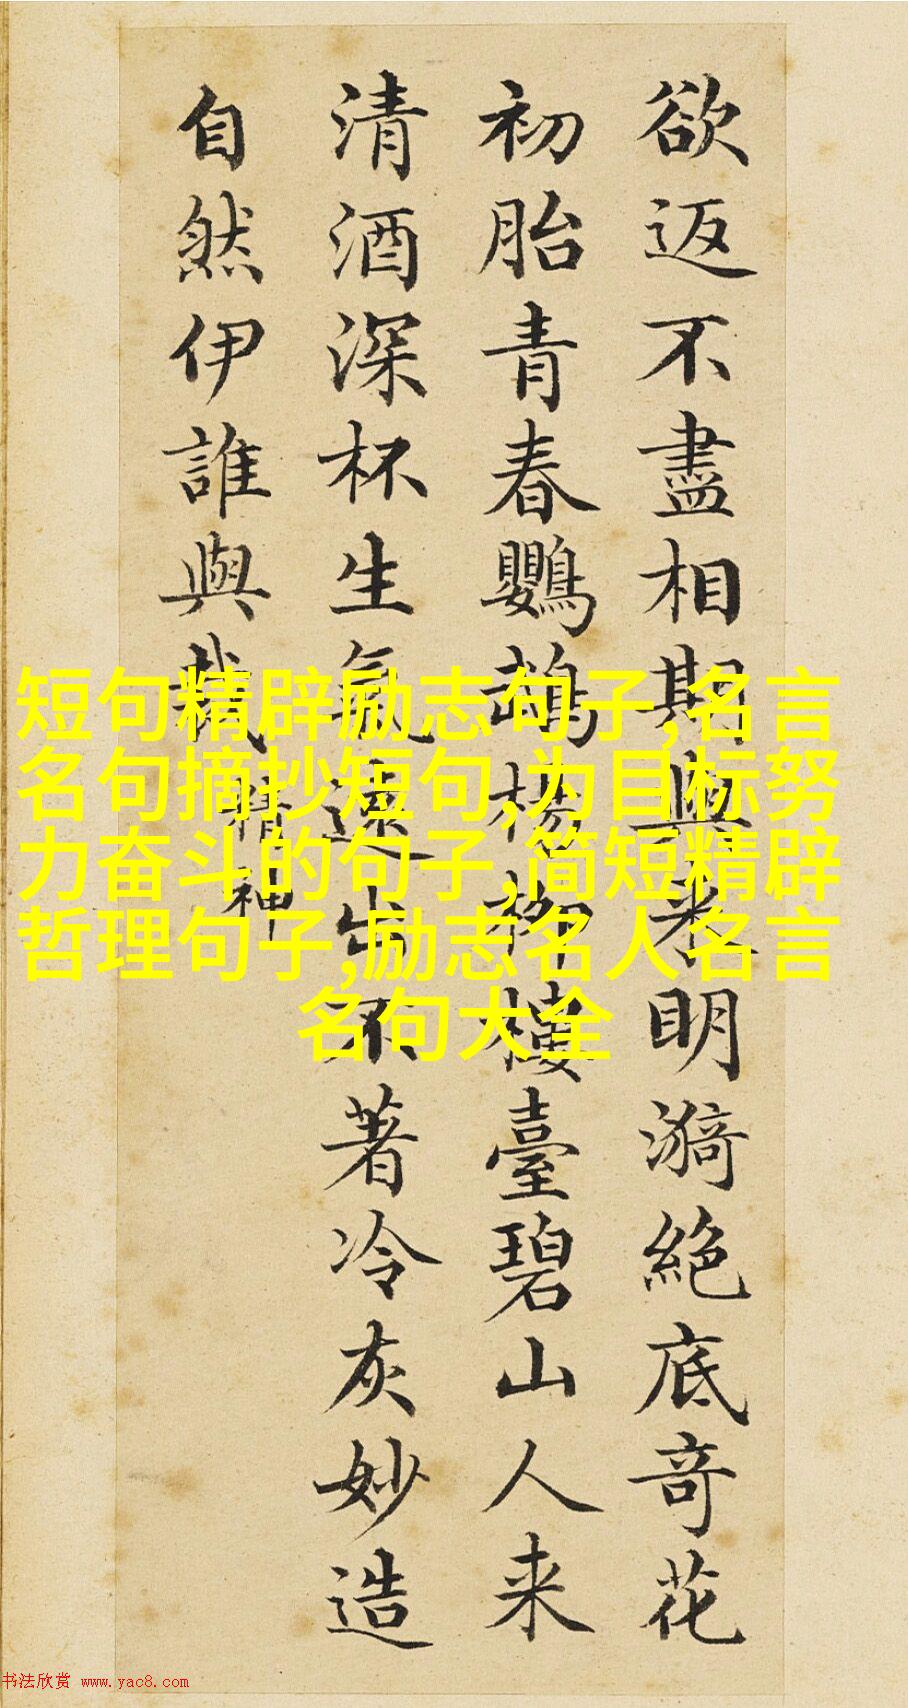 欲返不盡相期與来明漪絶底奇花
初胎青春鸚鵡楊柳樓臺碧山人来
清酒深杯生氣遠出不著冷灰妙造
自然伊誰與裁
精神
短句精辟励志句子,名言
名句摘抄短句,为目标努
力奋斗的句子,简短精辟
哲理句子,励志名人名言
名句大全
书法欣赏 www.yac8.com